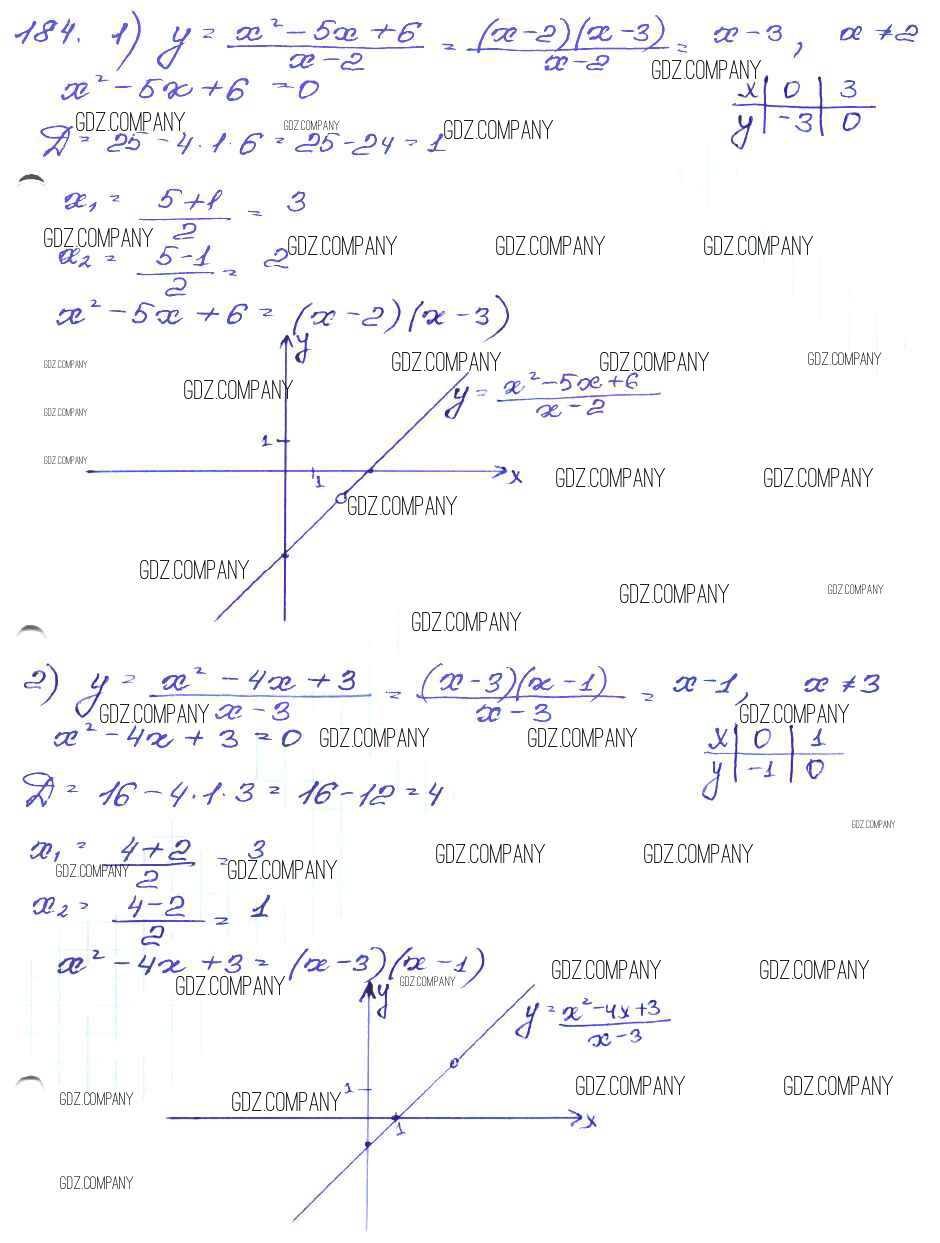 184. 1) y = (x² - 5x + 6)/(x - 2) = ((x - 2)(x - 3))/(x - 2) = x - 3, x ≠ 2
GDZ.COMPANY
x² - 5x + 6 = 0
x | 0 | 3
y | -3 | 0
GDZ.COMPANY GDZ.COMPANY GDZ.COMPANY
D = 25 - 4·1·6 = 25 - 24 = 1
x₁ = (5 + 1)/2 = 3
GDZ.COMPANY GDZ.COMPANY GDZ.COMPANY GDZ.COMPANY
x₂ = (5 - 1)/2 = 2
x² - 5x + 6 = (x - 2)(x - 3)
y
GDZ.COMPANY GDZ.COMPANY GDZ.COMPANY GDZ.COMPANY
GDZ.COMPANY
y = (x² - 5x + 6)/(x - 2)
GDZ.COMPANY
1
GDZ.COMPANY
1 x
GDZ.COMPANY GDZ.COMPANY
GDZ.COMPANY
GDZ.COMPANY
GDZ.COMPANY GDZ.COMPANY
GDZ.COMPANY
2) y = (x² - 4x + 3)/(x - 3) = ((x - 3)(x - 1))/(x - 3) = x - 1, x ≠ 3
GDZ.COMPANY GDZ.COMPANY
x² - 4x + 3 = 0
GDZ.COMPANY GDZ.COMPANY
x | 0 | 1
y | -1 | 0
D = 16 - 4·1·3 = 16 - 12 = 4
GDZ.COMPANY
x₁ = (4 + 2)/2 = 3
GDZ.COMPANY GDZ.COMPANY
GDZ.COMPANY GDZ.COMPANY
x₂ = (4 - 2)/2 = 1
x² - 4x + 3 = (x - 3)(x - 1)
GDZ.COMPANY GDZ.COMPANY
GDZ.COMPANY GDZ.COMPANY
y
y = (x² - 4x + 3)/(x - 3)
1
GDZ.COMPANY GDZ.COMPANY
GDZ.COMPANY GDZ.COMPANY
1 x
GDZ.COMPANY